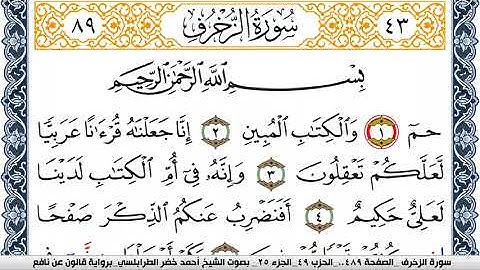 ٤٣ سُورَةُ الزُّخْرُفِ ٨٩
بِسْمِ اللَّهِ الرَّحْمَٰنِ الرَّحِيمِ
حمٓ ١ وَالْكِتَٰبِ الْمُبِينِ ٢ إِنَّا جَعَلْنَٰهُ قُرْءَٰناً عَرَبِيّاً
لَّعَلَّكُمْ تَعْقِلُونَ ٣ وَإِنَّهُۥ فِےٓ أُمِّ الْكِتَٰبِ لَدَيْنَا
لَعَلِيٌّ حَكِيمٌ ٤ أَفَنَضْرِبُ عَنكُمُ الذِّكْرَ صَفْحاً
سورة الزخرف _الصفحة ٤٨٩..الحزب ٤٩_الجزء ٢٥_ بصوت الشيخ أحمد خضر الطرابلسي_برواية قالون عن نافع